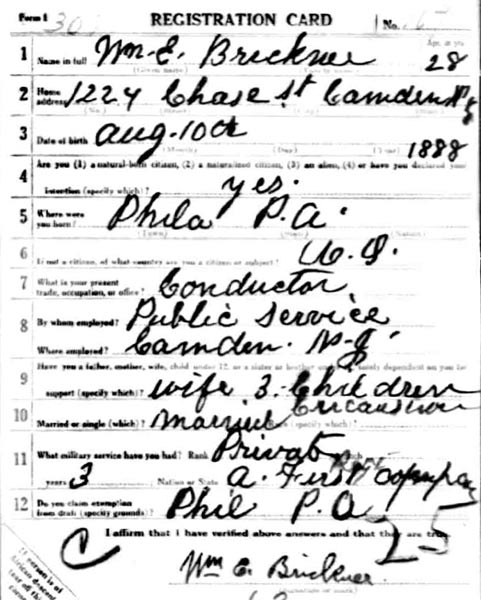 Form 1 REGISTRATION CARD No.
1 Name in full Wm. E. Brickner 28
(Given name) (Family name) Age, in yrs.
2 Home address 1224 Chase St Camden N.J.
(No.) (Street) (City) (State)
3 Date of birth Aug. 10th 1888
(Month) (Day) (Year)
4 Are you (1) a natural-born citizen, (2) a naturalized citizen, (3) an alien, (4) or have you declared your
intention (specify which)? yes.
5 Where were you born? Phila P.A.
(Town) (State) (Nation)
6 If not a citizen, of what country are you a citizen or subject? U.S.
7 What is your present trade, occupation, or office? Conductor
8 By whom employed? Public Service
Where employed? Camden. N.J.
9 Have you a father, mother, wife, child under 12, or a sister or brother under 12, solely dependent on you for
support (specify which)? wife 3. Children
10 Married or single (which)? Married Race (specify which)? Caucasian
11 What military service have you had? Rank Private branch
years 3 Nation or State A. First Company
12 Do you claim exemption from draft (specify grounds)? Phil P.A
I affirm that I have verified above answers and that they are true.
25
Wm E. Brickner.
(Signature or mark)
If person is of African descent